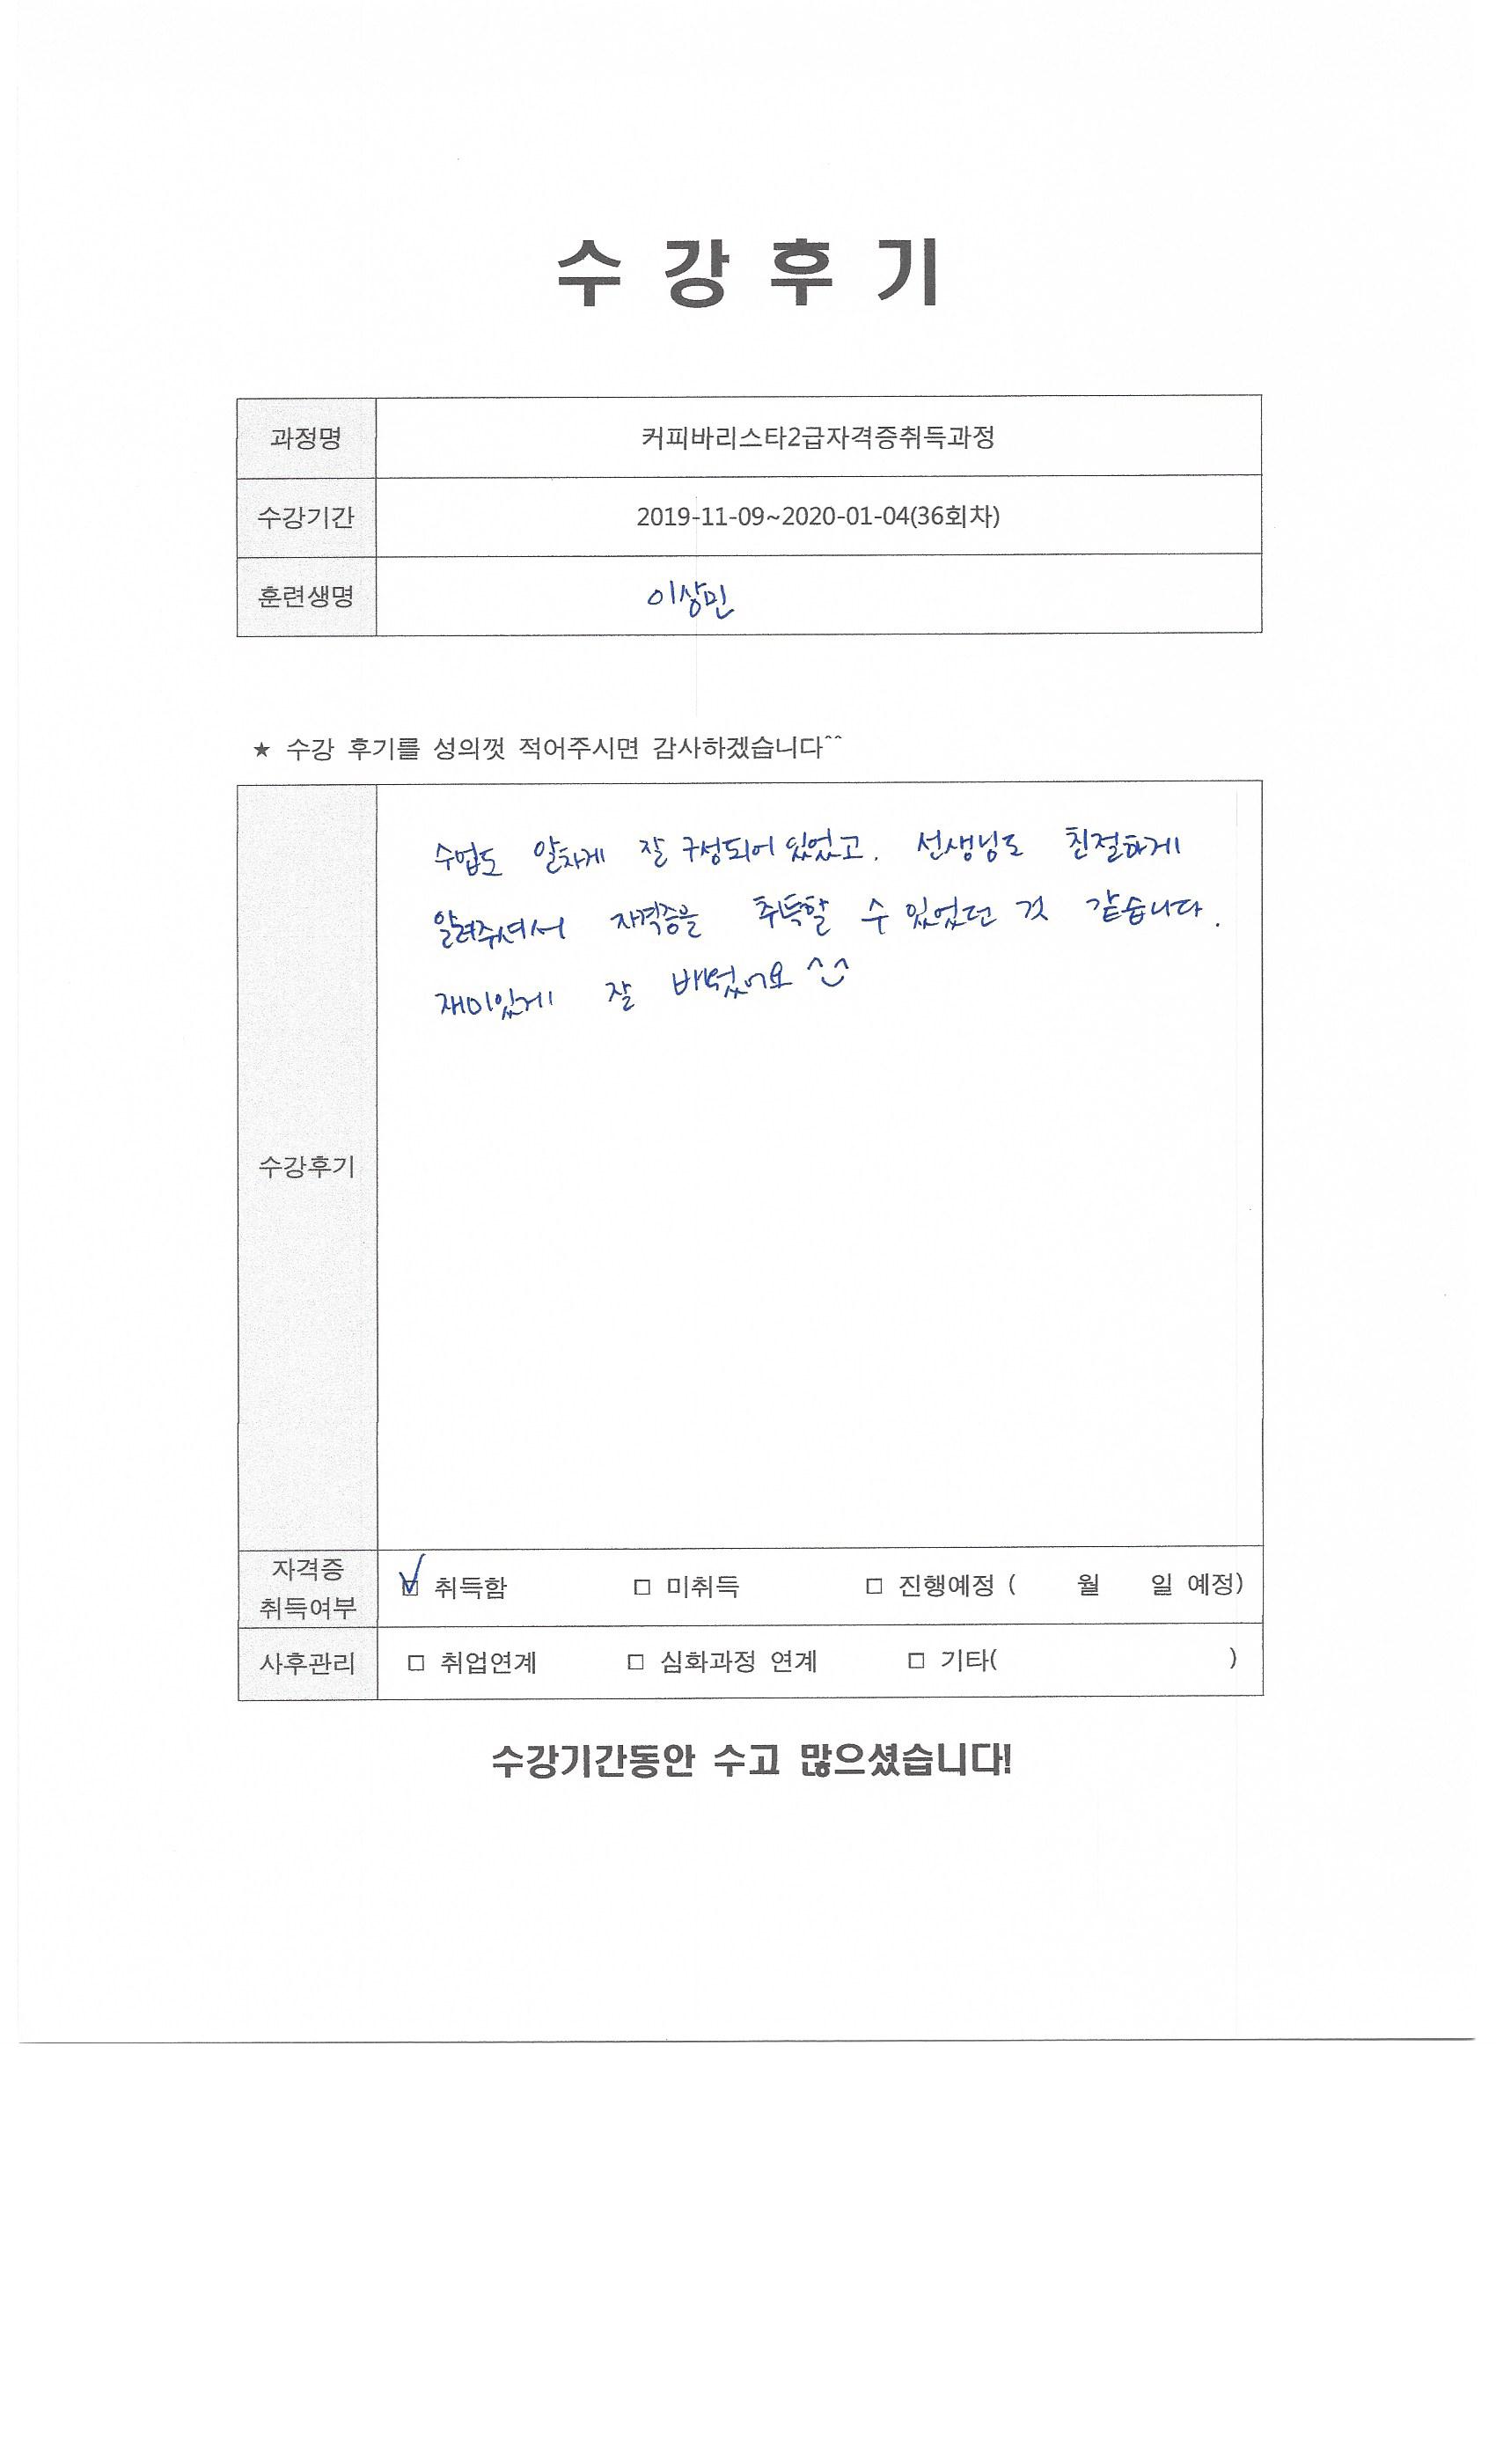 수 강 후 기
과정명 커피바리스타2급자격증취득과정
수강기간 2019-11-09~2020-01-04(36회차)
훈련생명 이상민
★ 수강 후기를 성의껏 적어주시면 감사하겠습니다^^
수업도 알차게 잘 구성되어 있었고. 선생님도 친절하게
알려주셔서 자격증을 취득할 수 있었던 것 같습니다.
재미있게 잘 배웠어요 ^^
수강후기
자격증
취득여부
☑ 취득함 □ 미취득 □ 진행예정 ( 월 일 예정)
사후관리 □ 취업연계 □ 심화과정 연계 □ 기타( )
수강기간동안 수고 많으셨습니다!